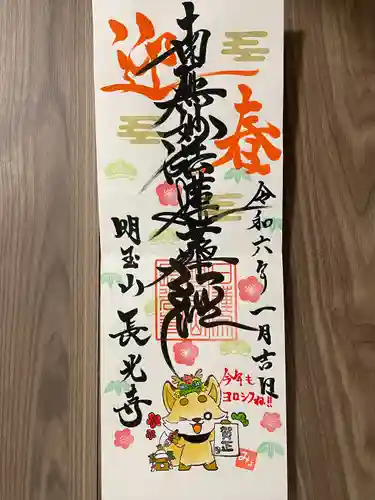 迎春
南無妙法蓮華経
令和六年一月吉日
明玉山 長光寺
今年も
ヨロシクね!!
賀正